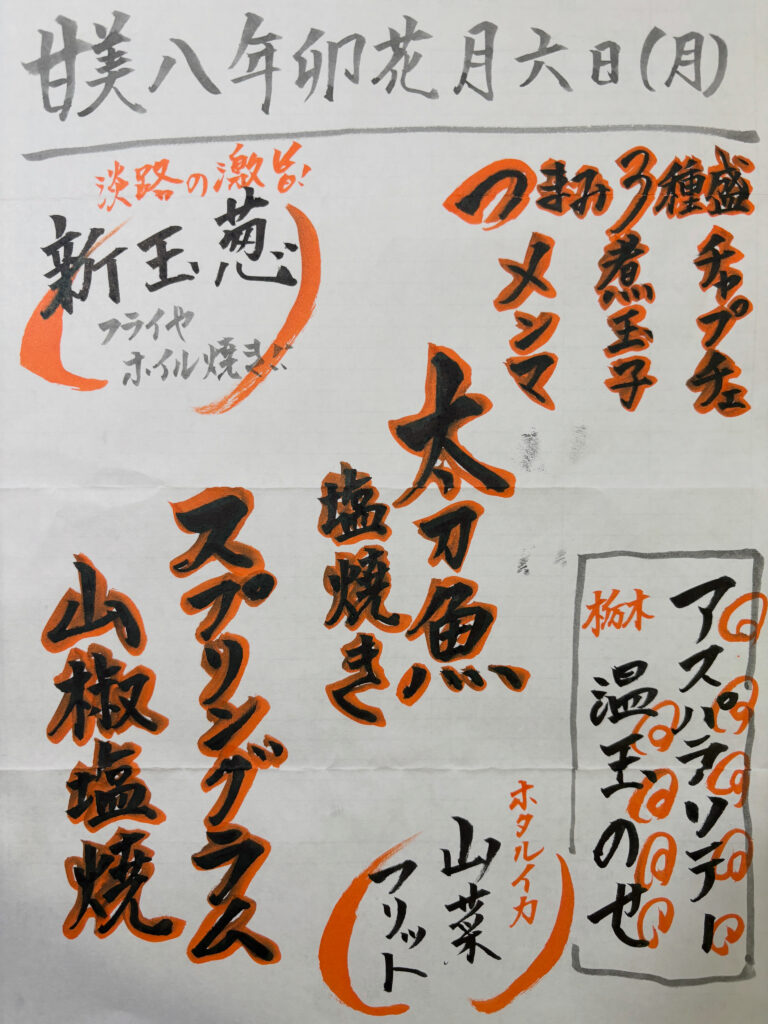 甘美八年卯花月六日(月)
つまみ3種盛
チャプチェ
煮玉子
メンマ
淡路の激旨!
新玉葱
フライヤ
ホイル焼き!!
太刀魚
塩焼き
スプリングラム
山椒塩焼
アスパラソテー
栃木
温玉のせ
ホタルイカ
山菜
フリット